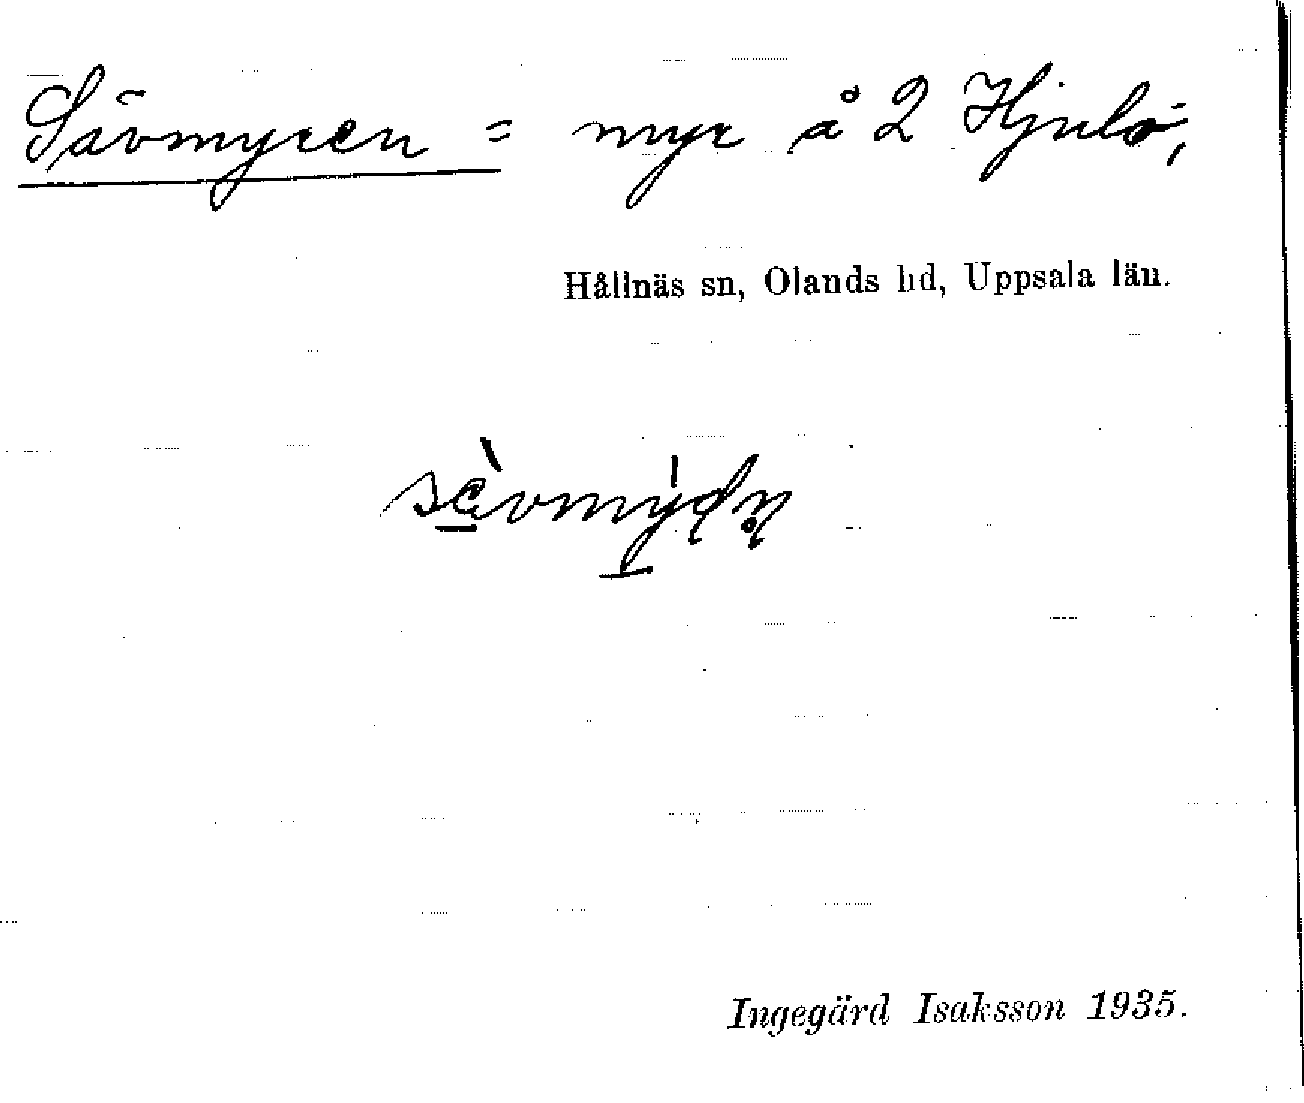 Sävmyren = myr å 2 Hjulö,
Hållnäs sn, Olands hd, Uppsala län.
Ingegärd Isaksson 1935.